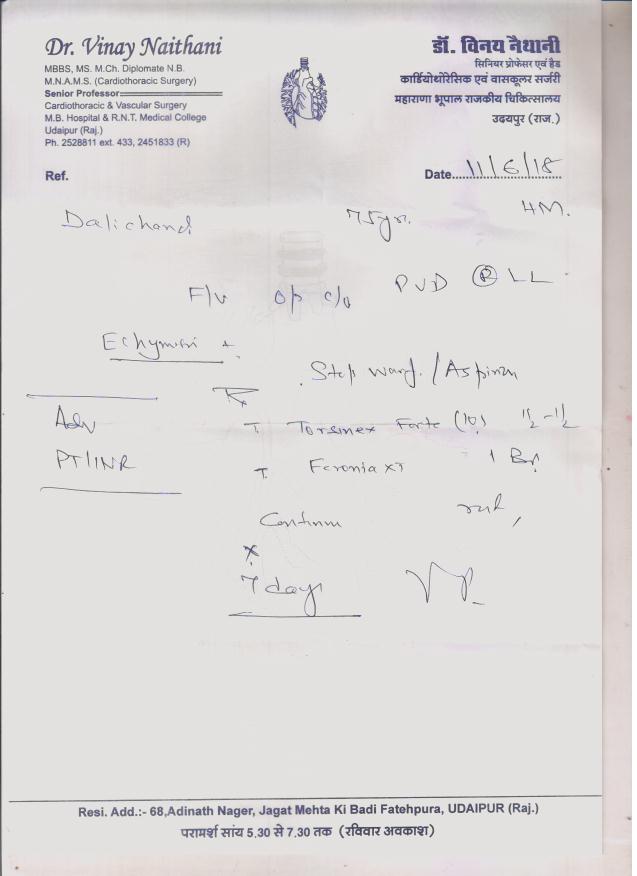 Dr. Vinay Naithani
MBBS, MS. M.Ch. Diplomate N.B.
M.N.A.M.S. (Cardiothoracic Surgery)
Senior Professor
Cardiothoracic & Vascular Surgery
M.B. Hospital & R.N.T. Medical College
Udaipur (Raj.)
Ph. 2528811 ext. 433, 2451833 (R)
डॉ. विनय नैथानी
सिनियर प्रोफेसर एवं हैड
कार्डियोथोरेसिक एवं वासकूलर सर्जरी
महाराणा भूपाल राजकीय चिकित्सालय
उदयपुर (राज.)
Ref.
Date 11/6/18
Dalichand 75yr.
F/u op c/o PVD Ⓡ LL
Stop warf./Aspirin
Adv
T Torsinex Forte (10) 1/2-1/2
PT/INR
T. Feronia XT 1 BF
Continue
x
7 days
Resi. Add.:- 68,Adinath Nager, Jagat Mehta Ki Badi Fatehpura, UDAIPUR (Raj.)
परामर्श सांय 5.30 से 7.30 तक (रविवार अवकाश)